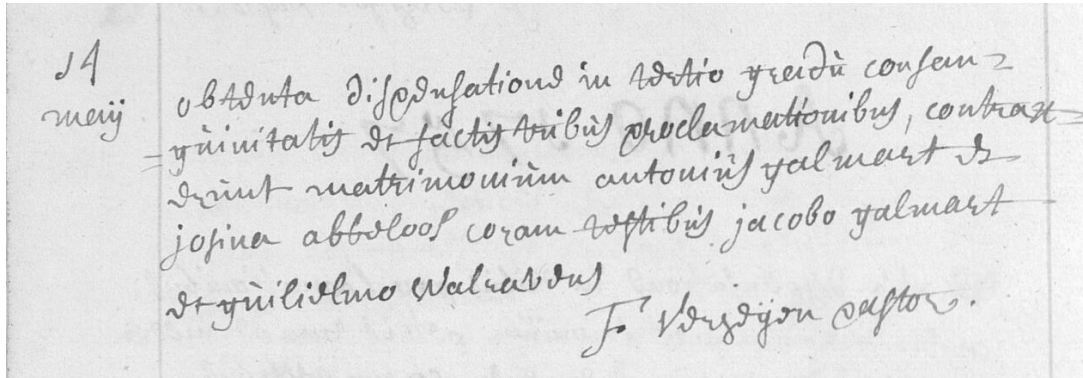 14
meij
obtenta dispensatione in tertio gradu consan=
=guinitatis et factis tribus proclamationibus, contrax=
erunt matrimonium antonius galmart et
josina abbeloos coram testibus jacobo galmart
et guilielmo Walravens
F Verheijen pastor.